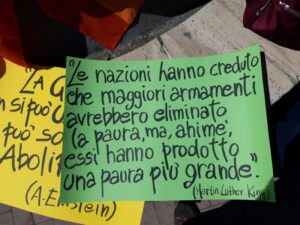 "Le nazioni hanno creduto
che maggiori armamenti
avrebbero eliminato
la paura, ma, ahimè,
essi hanno prodotto
una paura più grande".
(Martin Luther King)
"LA G
n si può
può so
Aboli
(A. Einstein)